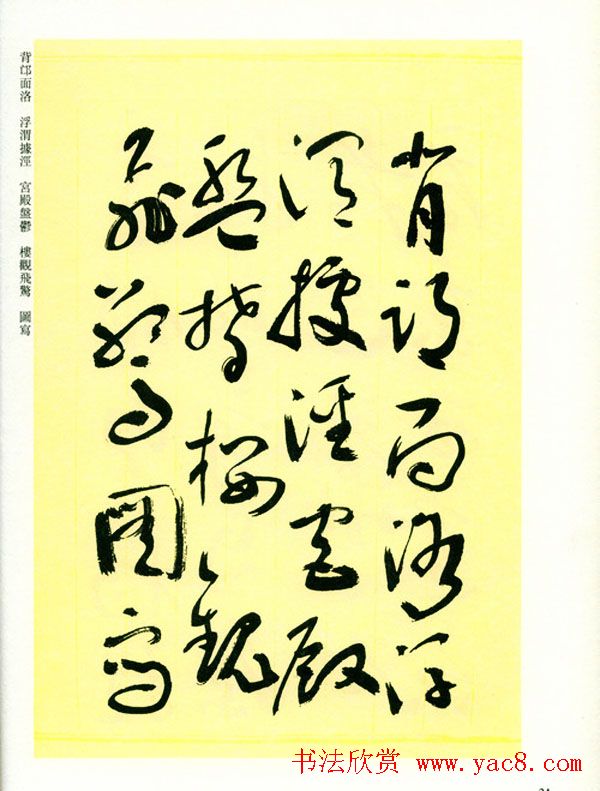 背邙面洛浮
渭據涇宮殿
盤鬱樓觀
飛驚圖寫
背邙面洛　浮渭據涇　宮殿盤鬱　樓觀飛驚　圖寫
书法欣赏 www.yac8.com